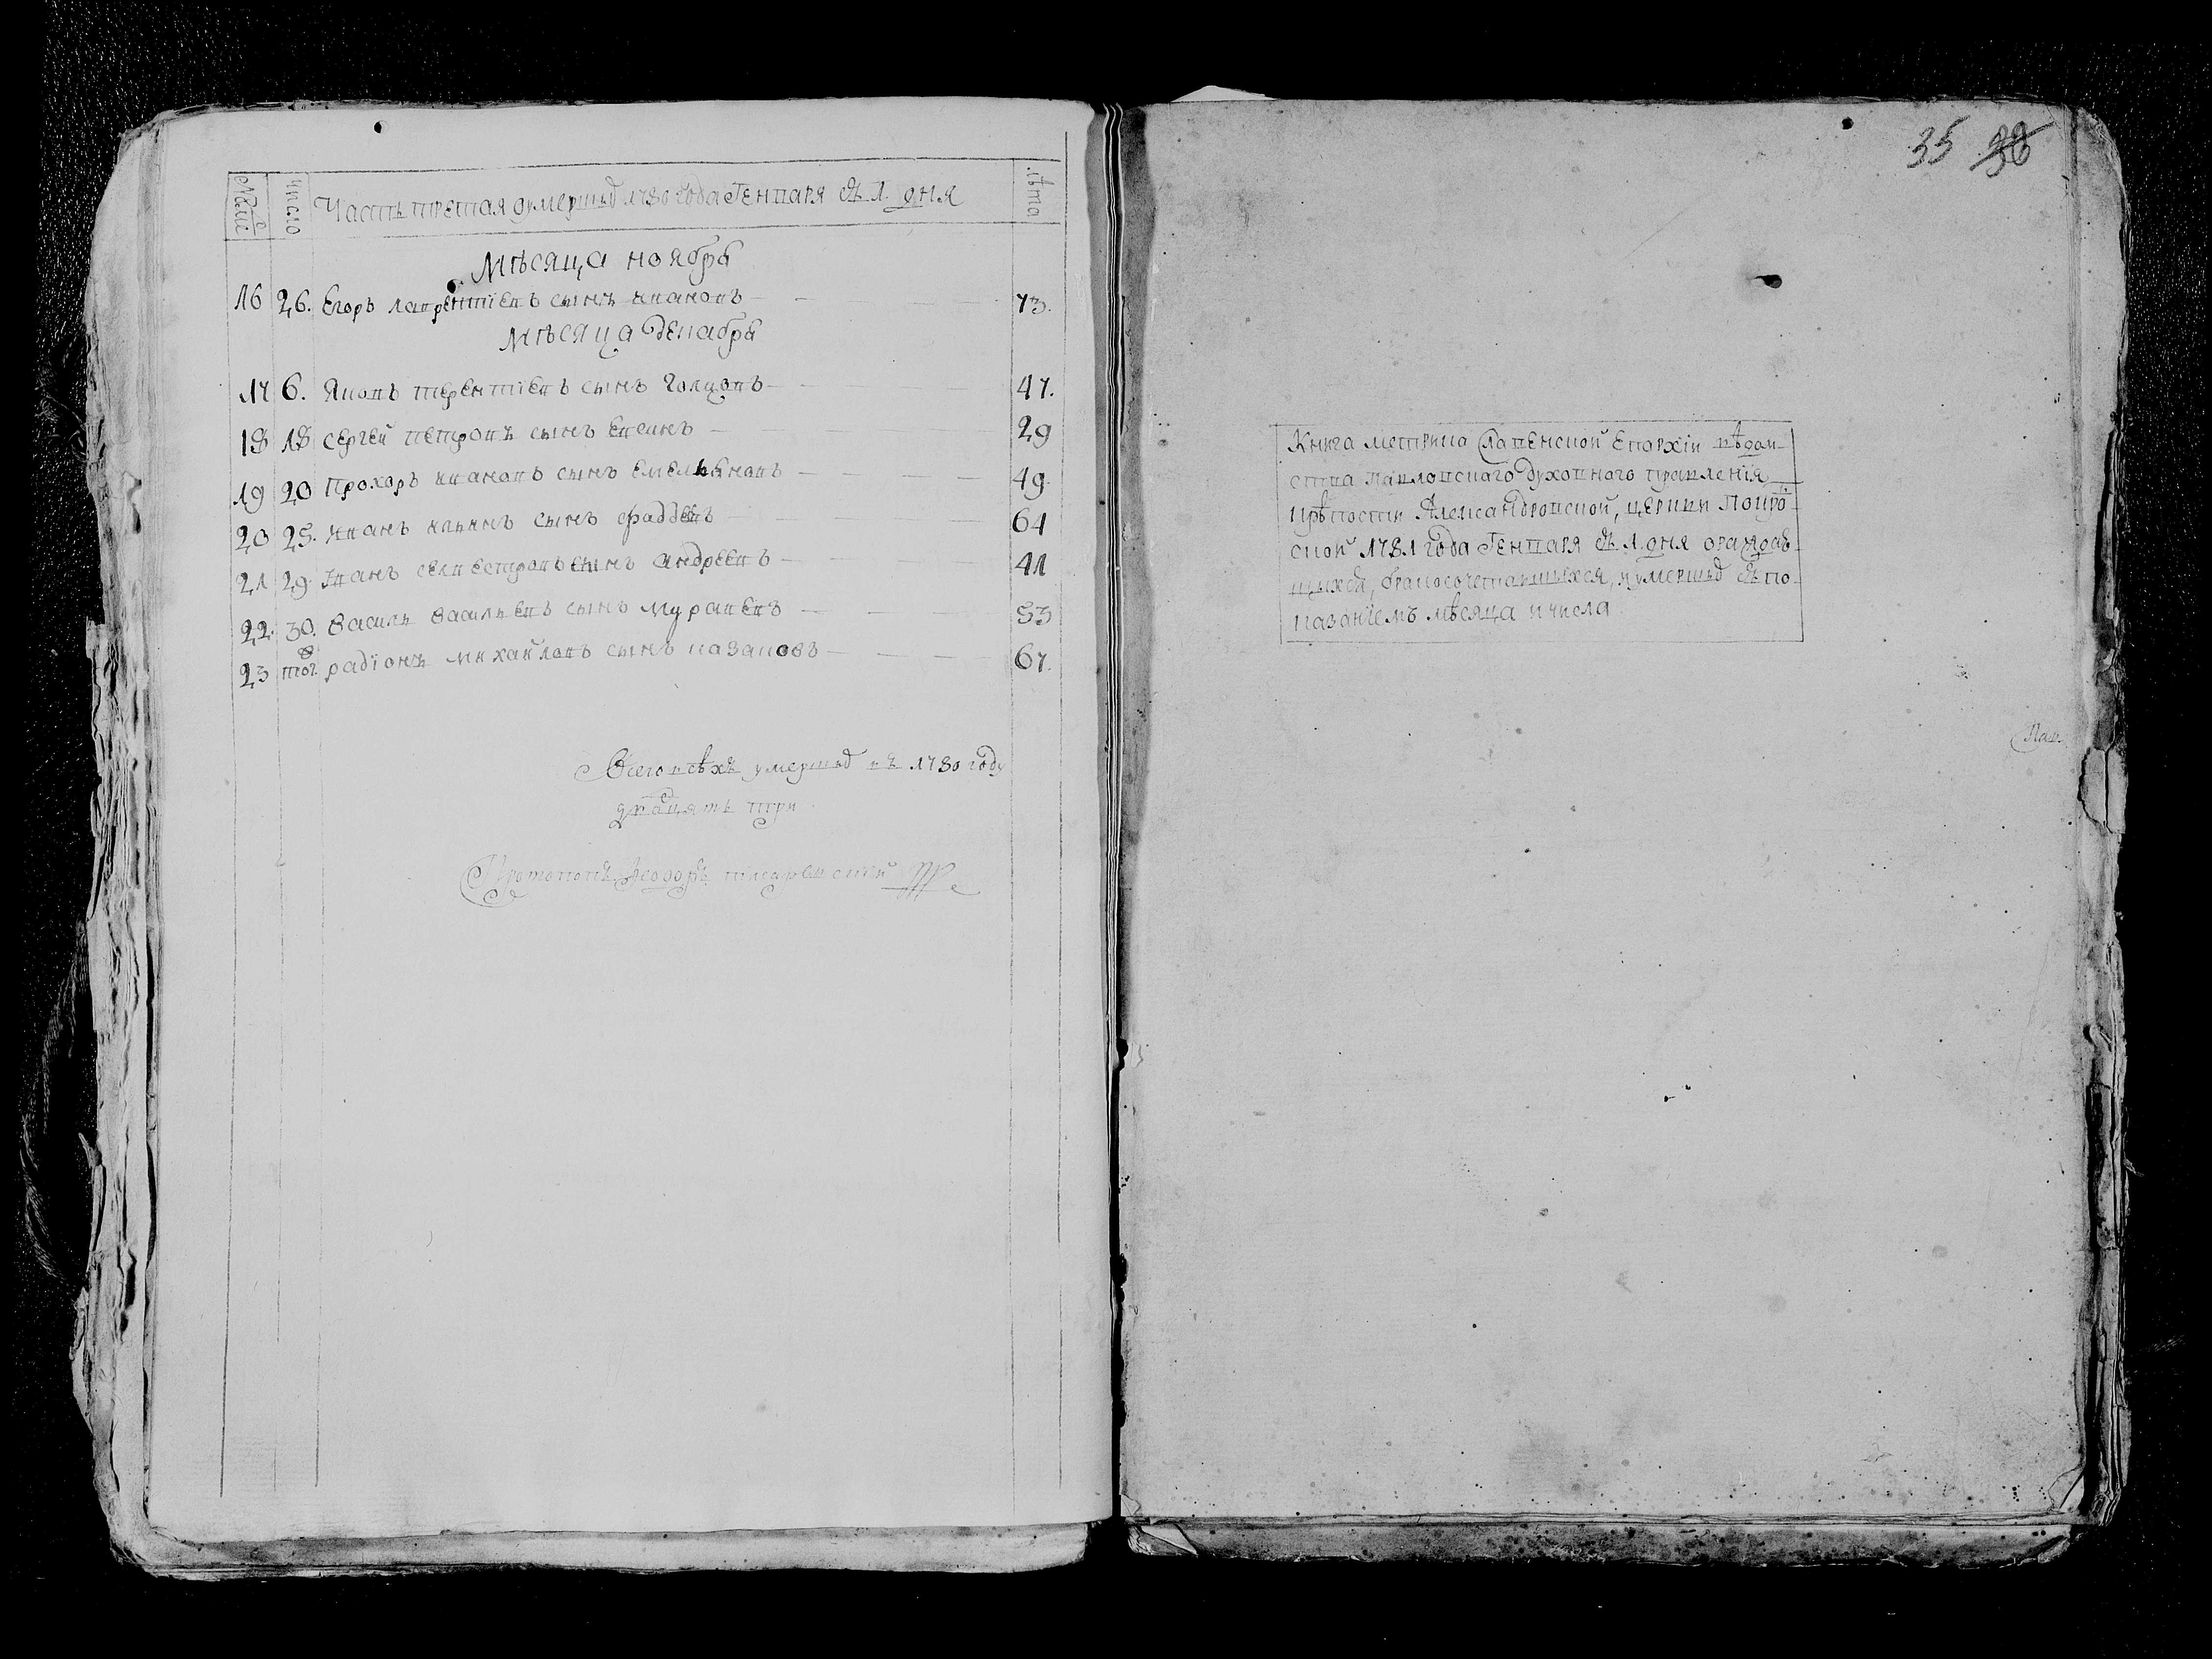 Мсце
число
Часть третая оумершихъ 1780 года Генваря съ 1. дня
лѣта
Мѣсяца ноября
16 26. Егоръ лаврентиевъ сынъ ивановъ 73.
Мѣсяца Декабря
17 6. Яковъ терентиевъ сынъ Голцовъ 47.
18 18 сергей петровъ сынъ Евсинъ 29
19 20 Прохоръ ивановъ сынъ емельяновъ 49.
20 25. иванъ ильинъ сынъ фаддеевъ 64
21 29. Иванъ селиестровъ сынъ андреевъ 41
22. 30. Василй васильевъ сынъ муравевъ 53
23 тог. радионъ михайловъ сынъ казаковъ 67.
Всего всѣхъ умершихъ въ 1780 году
дватцать три
Протопопъ Феодоръ писаревский
35 36
Книга метрика Славенской Епархіи вѣдом-
ства Павловскаго духовного правленія
крѣпости Александровской, церкви Покро-
ской 1781 года Генваря съ 1. дня о раждаю-
щыхся, бракосочетавшыхся, и умершихъ съ по-
казаніемъ мѣсяца и числа.
Пав.